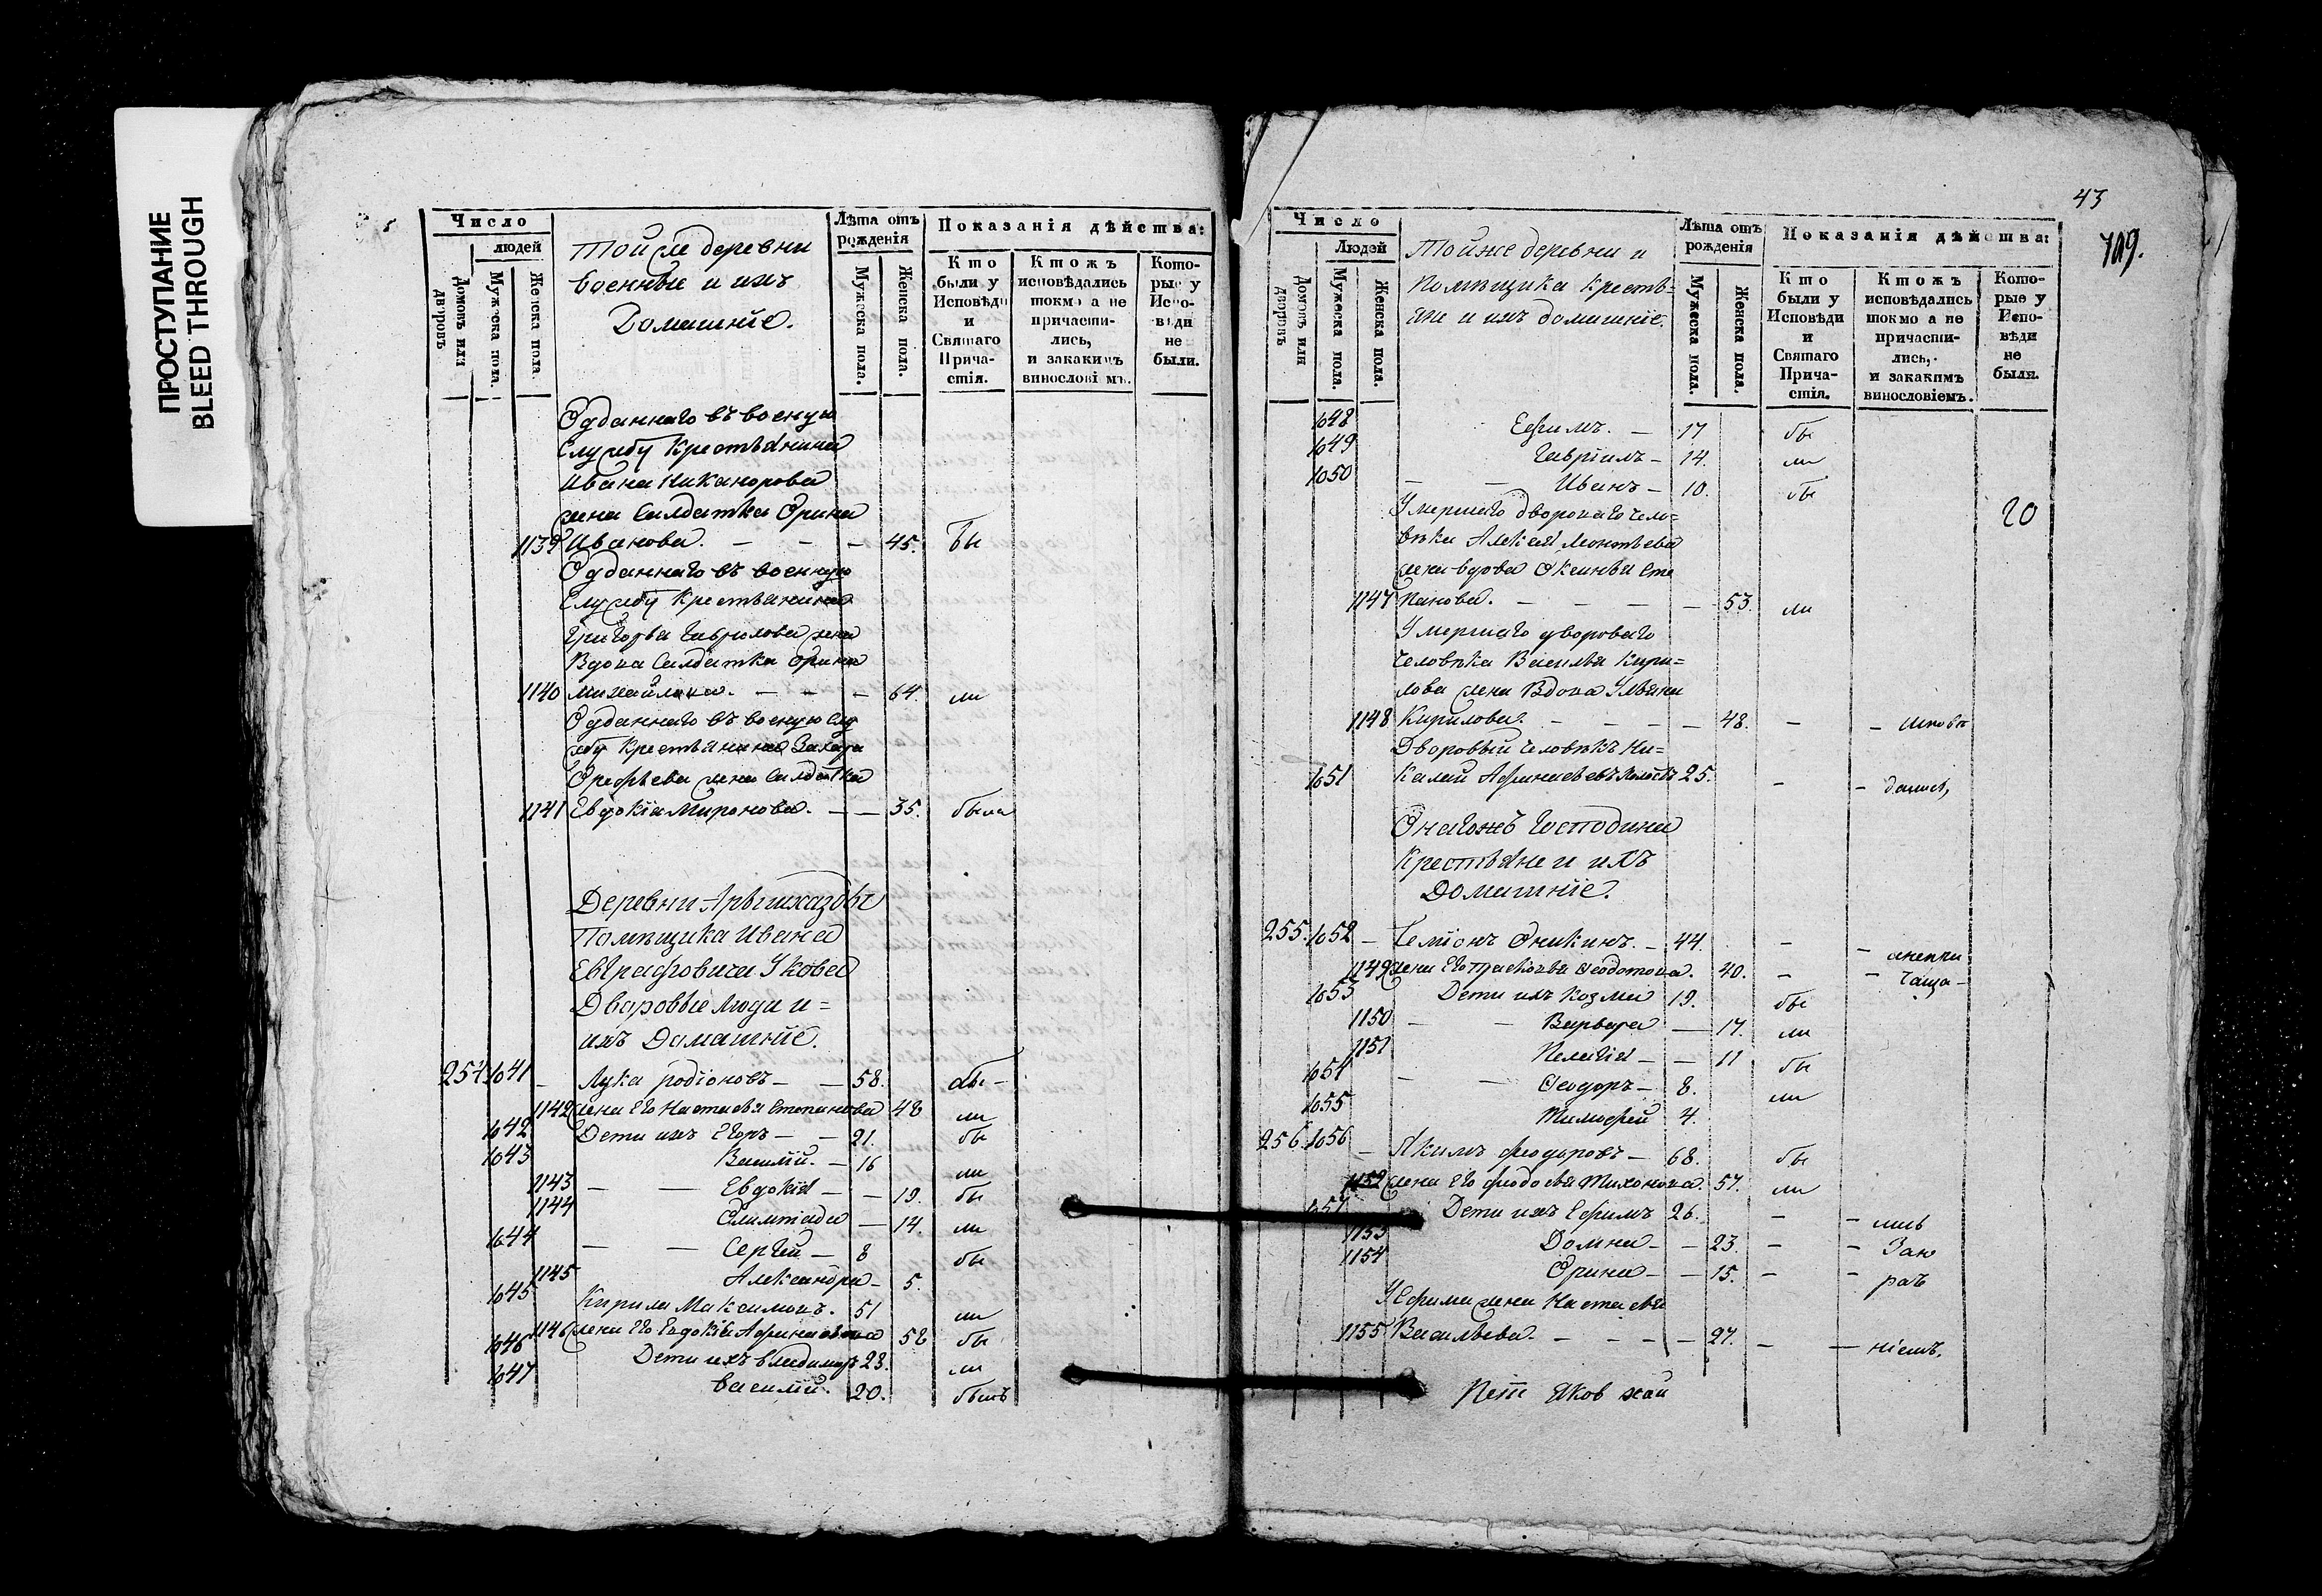 ПРОСТУПАНИЕ
BLEED THROUGH
Число
людей
Домовъ или дворовъ
Мужеска пола.
Женска пола.
Той же деревни
военные и ихъ
Домашніе.
Лѣта отъ рожденія
Мужеска пола.
Женска пола.
Показанія дѣйства:
Кто были у Исповѣди и Святаго Прича-стія.
Ктожъ исповѣдались токмо а не причасти-лись, и закакимъ винословіемъ.
Кото-рые у Испо-вѣди не были.
Отданнаго въ военую
службу крестьянина
Ивана Никанорова
жена Салдатка Орина
1139 Иванова. — — — 45. бы
Отданнаго въ военную
службу крестьянина
Григорья Гаврилова жена
Вдова Салдатка Орина
1140 Михайлова. — — — 64. ли
Отданнаго въ военую слу
жбу крестьянина Захара
Орефьева жена Салдатка
1141 Евдокіа Миронова. — — 35. была
Деревни
Помѣщика Ивана
Евграфовича
Дворовые люди и=
ихъ Домашніе.
254 1041 — Лука родіоновъ — — 58. бы —
1142 жена Его Настасья Степанова 48 ли
1042 Дети ихъ Егоръ — — 21. бы
1043 Василій. — 16 ли
1143 — — Евдокія — — 19. бы
1144 Олимпіада — 14. ли
1044 — — Сергей — 8 бы
1145 Александра — 5.
1045 Кирила Максимовъ. 51 ли
1146 жена Его Евдокіа Афанасьева 58 бы
1046 Дети ихъ владимиръ 23. ли
1047 василій. 20. былъ
43
709.
Число
Людей
Домовъ или дворовъ
Мужеска пола.
Женска пола.
Тойже деревни и
Помѣщика крестья=
яне и ихъ домашніе.
Лѣта отъ рожденія
Мужеска пола.
Женска пола.
Показанія дѣйства:
Кто были у Исповѣди и Святаго Прича-стія.
Ктожъ исповѣдались токмо а не причасти-лись, и закакимъ винословіемъ.
Кото-рые у Испо-вѣди не были.
1048 Ефимъ. — 17 бы
1049 Гавріилъ — 14. ли
1050 — — Иванъ — 10. бы
20
Умершаго двороваго чело=
вѣка Алексея Леонтьева
жена вдова Оксинья Сте
1147 панова. — — — — 53. ли
Умершаго двороваго
человѣка Василья Кири=
лова жена Вдова Ульяна
1148 Кирилова. — — — — 48. —
Дворовый человѣкъ Ни=
1051 калай Афанасьевъ холостъ 25. —
Онагожъ Господина
Крестьяне и ихъ
Домашніе.
255. 1052 — Семіонъ Оникинъ. — 44. —
1149 жена Его Прасковья Феодотова. 40. —
1053 Дети ихъ Козма 19. бы
1150 — — Варвара — 17. ли
1151 Пелагія — — 11 бы
1054 — — Феодоръ — 8. ли
1055 Тимофей 4.
256. 1056 — Якимъ феодоровъ — 68. бы
1152 жена Его федосья Тихонова. 57. ли
1057 Дети ихъ Ефимъ 26. — — лись
1153 Домна — — 23. — — Зан
1154 Орина — — 15. — —
У Ефима жена Настасья
1155 Васильева. — — — — 27. — — ніемъ.